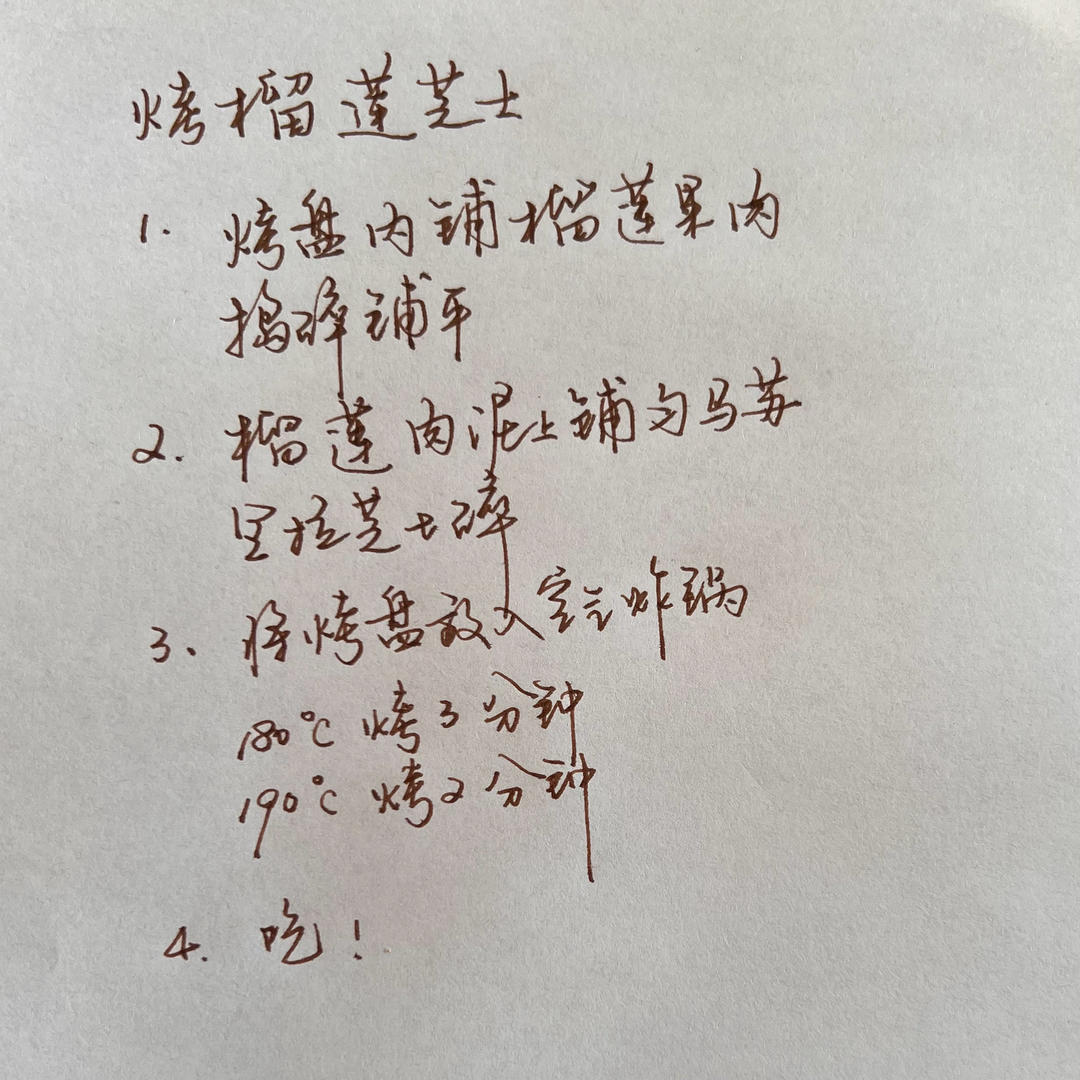 烤榴莲芝士
1. 烤盘内铺榴莲果肉
捣碎铺平
2. 榴莲肉泥上铺匀马苏
里拉芝士碎
3. 将烤盘放入空气炸锅
180℃ 烤3分钟
190℃ 烤2分钟
4. 吃!